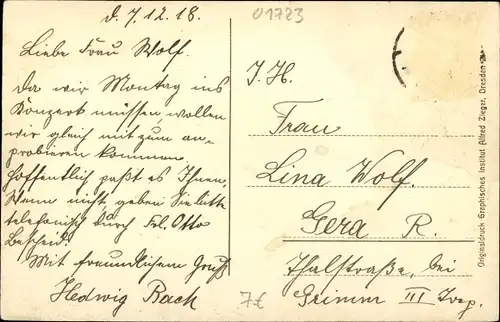 d. 7.12.18.
01723
Liebe Frau Wolf.
Da wir Montag ins
Konzert müssen, wollen
wir gleich mit zum an-
probieren kommen.
Hoffentlich paßt es Ihnen,
Wenn nicht, geben Sie bitte
telefonisch durch Frl. Otto
Bescheid.
Mit freundlichem Gruß
Hedwig Rach
7€
I. H.
Frau
Lina Wolf.
Gera R.
Thalstraße, bei
Grimm III Trep.
Originaldruck Graphisches Institut Alfred Zieger, Dresden